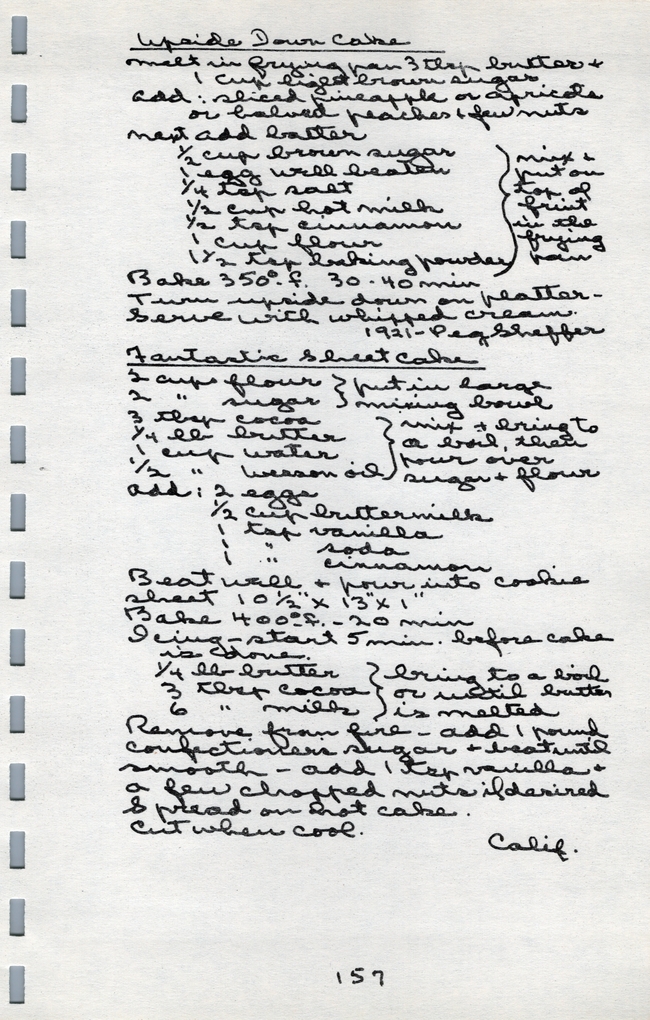 Upside Down Cake
melt in frying pan 3 tbsp butter +
1 cup light brown sugar
add: sliced pineapple or apricots
or halved peaches + few nuts
next add batter
1/2 cup brown sugar
1 egg well beaten
1/4 tsp salt
1/2 cup hot milk
1/2 tsp cinnamon
1 cup flour
1 1/2 tsp baking powder
mix +
put on
top of
fruit
in the
frying
pan
Bake 350°f. 30-40 min
Turn upside down on platter -
Serve with whipped cream.
1921 - Peg Sheffer
Fantastic Sheet Cake
2 cups flour
2 " sugar
put in large
mixing bowl
3 tbsp cocoa
1/4 lb butter
1 cup water
1/2 " Wesson oil
mix + bring to
a boil, then
pour over
sugar + flour
add: 2 eggs
1/2 cup buttermilk
1 tsp vanilla
1 " soda
1 " cinnamon
Beat well + pour into cookie
sheet 10 1/2" x 13" x 1"
Bake 400°f. - 20 min
Icing - start 5 min. before cake
is done.
1/4 lb butter
3 tbsp cocoa
6 " milk
bring to a boil
or until butter
is melted
Remove from fire - add 1 pound
confectioners sugar + beat until
smooth - add 1 tsp vanilla +
a few chopped nuts if desired
Spread on hot cake.
Cut when cool.
Calif.
157